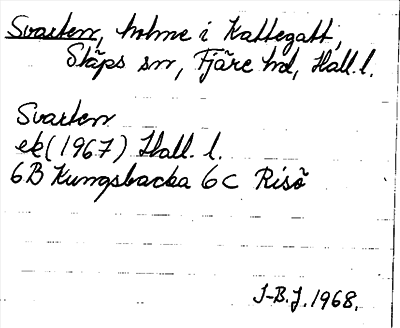 Svarten, holme i Kattegatt,
Släps sn, Fjäre hd, Hall. l.
Svarten
ek (1967) Hall. l.
6B Kungsbacka 6C Risö
J-B.J. 1968.